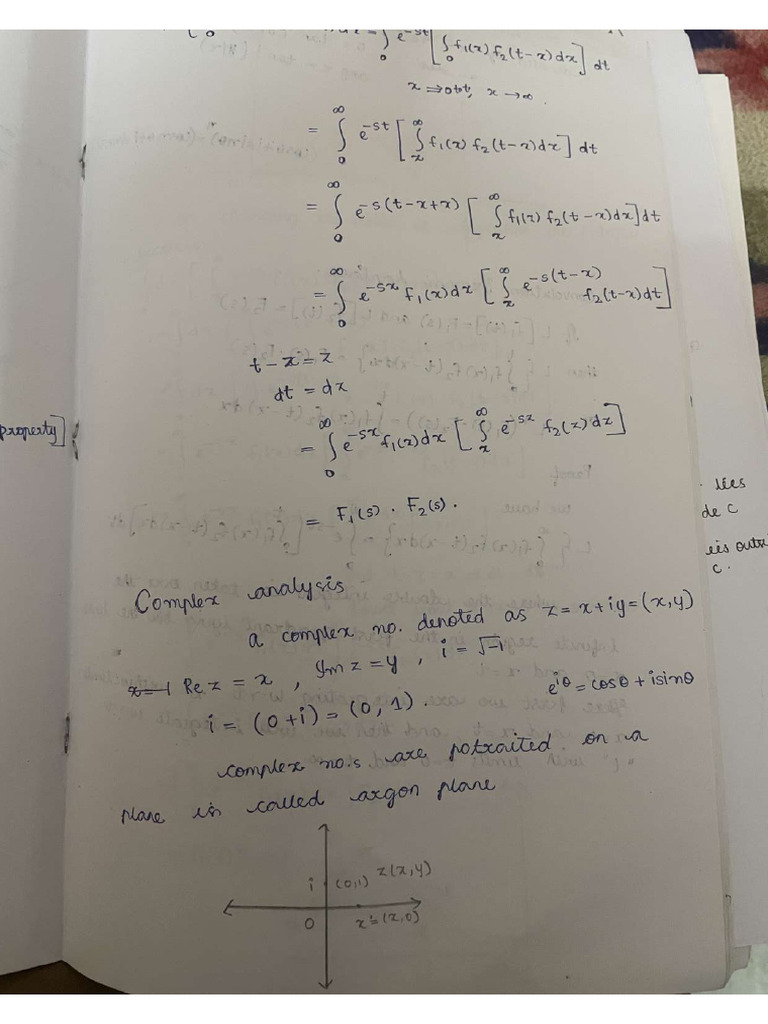 = ∫₀^∞ e^{-st} [ ∫₀ f₁(x) f₂(t-x) dx ] dt
x ⇒ 0 to t, x → ∞.
= ∫₀^∞ e^{-st} [ ∫ₓ^∞ f₁(x) f₂(t-x) dx ] dt
= ∫₀^∞ e^{-s(t-x+x)} [ ∫ₓ^∞ f₁(x) f₂(t-x) dx ] dt
= ∫₀^∞ e^{-sx} f₁(x) dx [ ∫ₓ^∞ e^{-s(t-x)} f₂(t-x) dt ]
t - x = z
dt = dz
= ∫₀^∞ e^{-sx} f₁(x) dx [ ∫ₓ^∞ e^{-sz} f₂(z) dz ]
= F₁(s) . F₂(s) .
Complex analysis
a complex no. denoted as z = x + iy = (x, y)
Re z = x , Im z = y , i = √-1
e^{iθ} = cosθ + i sinθ
i = (0 + i) = (0, 1) .
complex no.s are potraited on a
plane is called argon plane
i (0,1) z(x, y)
0 x = (x, 0)
property]
lies
de C
C.